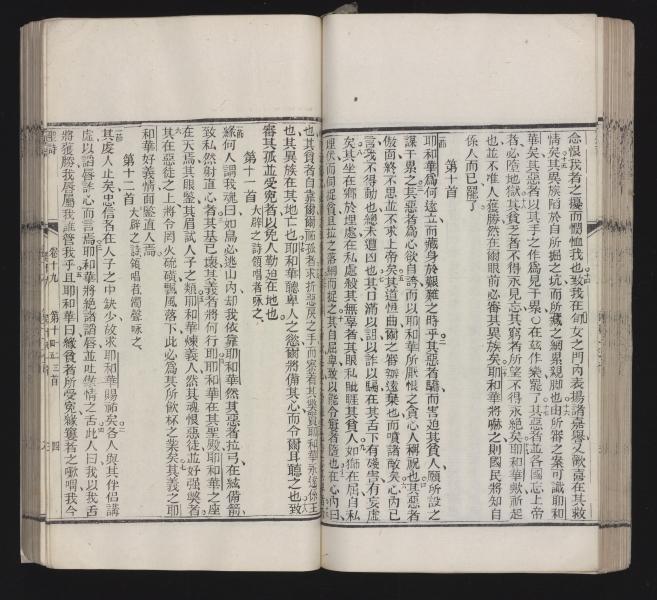 念恨我者之擾而憫恤我也致我在郇女之門內表揚諸嘉譽又歡喜在其救
情矣其異族陷於自所掘之坑而所藏之網累親脚也由所審之案可識耶和
華矣其惡者以其手之作為見于累○在茲作樂罷了其惡者並各國忘上帝
者必陷地獄其貧乏者不得永見忘其窮者所望不得永絕矣耶和華歟祈起
也並不准人獲勝然在爾眼前必審其異族矣耶和華將嚇之則國民將知自
係人而已罷了
第十首
耶和華為何遠立而藏身於艱難之時乎其惡者驕而害迫其貧人願所設之
謀干累之其惡者為心欲自誇而以耶和華所厭恨之貪心人稱祝也其惡者
傲面終不思並不求上帝矣其道恆曲爾之審辦遠棄也而噴諸敵矣心內已
言我不得動也總未遭凶也其口滿以詛以詐以騙在其舌下有殘害有妄虛
矣其坐在鄉於埋處在私處殺其無辜者其眼私眦睚其貧人如獅在居自私
也其貧者自靠爾爾
也其異族在其地亡也耶和華聽卑人之慾爾將備其心而令爾耳聽之也致
審其孤並受寃者以免人勒迫在地也
第十一首 大辟之詩領唱者咏之
緣何人謂我魂曰如鳥必逃山内却我依靠耶和華然其惡者拉弓在絃備箭
致私然射直心者其基已壞其義者將何行耶耶和華在其聖殿耶和華之座
在天焉其眼鑒其眉試人子之類耶和華煉義人然其魂恨惡徒並好强獘者
其在惡徒之上將令罔火硫磺飄風落下此必為其所飲杯之業矣其義之耶
和華好義情面鑒直人焉
第十二首 大辟之詩領唱者獨聲咏之
其處人止矣忠信者在人子之中缺少故求耶和華賜祐矣各人與其伴侶講
虛以謟唇詐心而言焉耶和華將絕諸謟唇並吐傲情之舌此人曰我以我舌
將獲勝我唇屬我誰管我乎且耶和華曰緣貧者所受寃緣窮者之歎唱我今
聖詩 卷十九 第十 四 五 三首 四